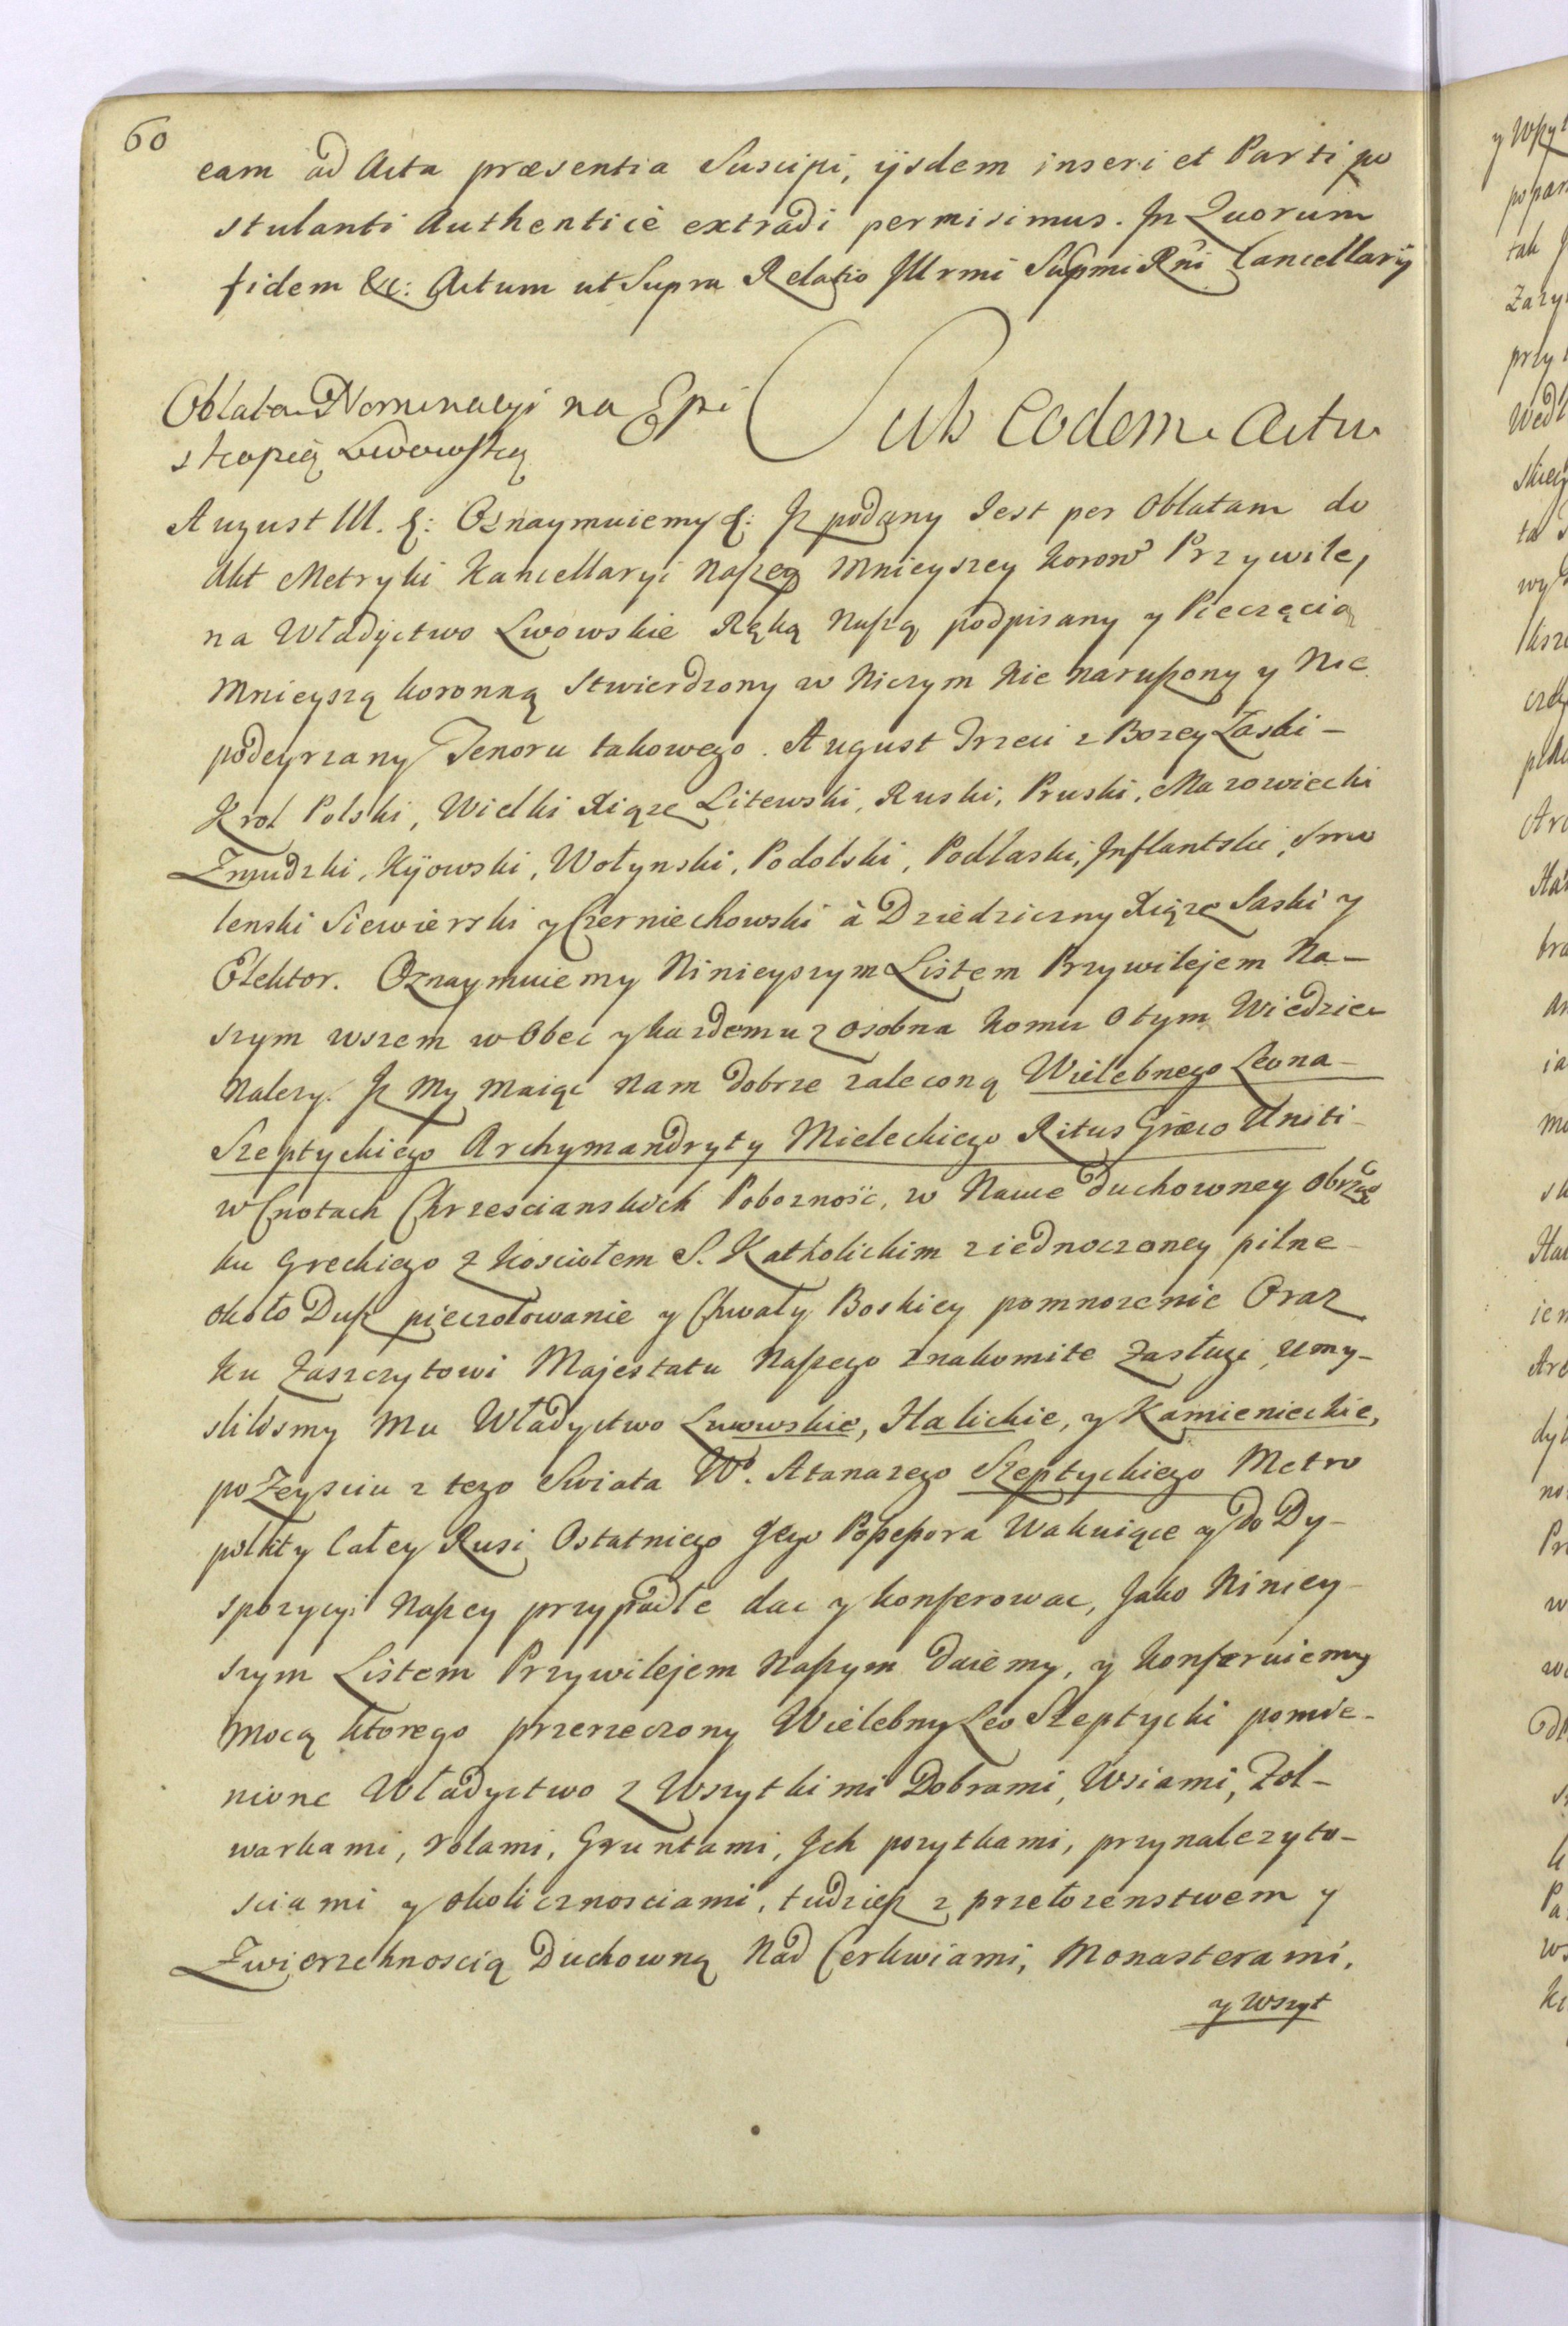 60
eam ad Acta præsentia Suscipi, ijsdem inseri et Parti po
stulanti Authenticè extradi permisimus. In Quorum
fidem &c: Actum ut Supra Relatio Illrmi Supmi Rni Cancellarij
Oblata Nominacyi na Epi
skopią Lwowską
Sub Eodem Actu
August III. &: Oznaymuiemy &: Iz podany Jest per Oblatam do
Akt Metryki Kancellaryi Naszey Mnieyszey Koron Przywiley
na Władyctwo Lwowskie Ręką Naszą podpisany y Pieczęcią
Mnieyszą Koronną Stwierdzony w Niczym Nie Naruszony y Nie
podeyrzany Tenoru takowego. August Trzeci z Bozey Łaski -
Krol Polski, Wielki Xiąze Litewski, Ruski, Pruski, Mazowiecki
Zmudzki, Kijowski, Wołynski, Podolski, Podlaski, Inflantski, Smo
lenski Siewierski y Czerniechowski à Dziedziczny Xiąze Saski y
Elektor. Oznaymuiemy Ninieyszym Listem Przywilejem Na-
szym wszem w Obec y kazdemu z osobna Komu o tym Wiedziec
Nalezy. Iz My Maiąc Nam dobrze zaleconą Wielebnego Leona
Szeptyckiego Archymandryty Mieleckiego Ritus Græco Uniti
w Cnotach Chrzescianskich Poboznosc, w Nauce duchowney Obrząd
ku Greckiego z Kosciołem S. Katholickim ziednoczoney pilne
około Dusz pieczołowanie y Chwały Boskiey pomnozenie Oraz
ku Zaszczytowi Majestatu Naszego znakomite Zasługi, umy-
slilismy Mu Władyctwo Lwowskie, Halickie, y Kamienieckie,
po Zeysciu z tego Swiata Wo. Atanazego Szeptyckiego Metro
polity Całey Rusi Ostatniego Jego Possessora Wakuiące y do Dy-
spozycyi Naszey przypadłe dac y konferowac, Jako Niniey-
szym Listem Przywilejem Naszym daiemy, y Konferuiemy
Mocą ktorego przerzeczony Wielebny Leo Szeptycki pomie-
nione Władyctwo z Wszytkimi Dobrami, Wsiami, Fol-
warkami, rolami, Gruntami, Ich pozytkami, przynalezyto-
sciami y okolicznosciami, tudziesz z przełozenstwem y
Zwierzchnoscią Duchowną Nad Cerkwiami, Monasterami,
y Wszyt